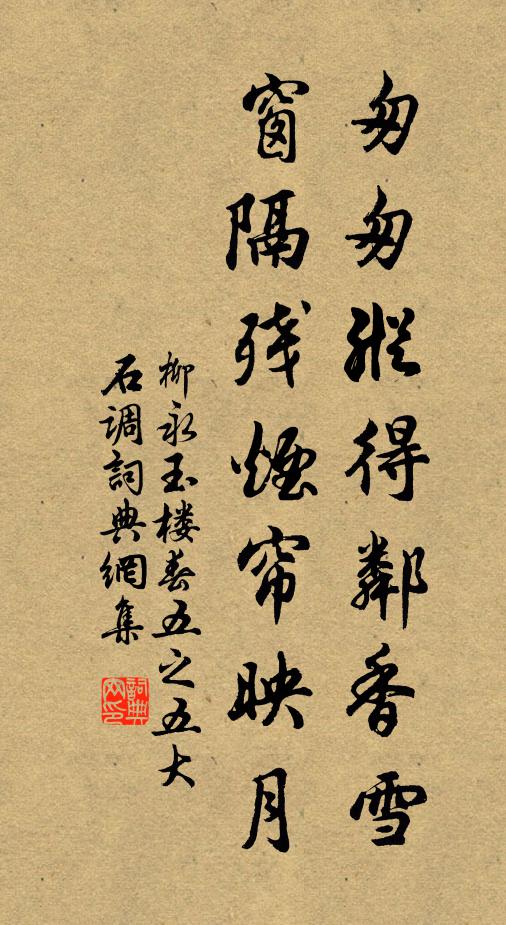 匆匆縱得鄰香雪
窗隔残煙帘映月
柳永玉楼春五之五大
石调詞典網集
詞典
网印